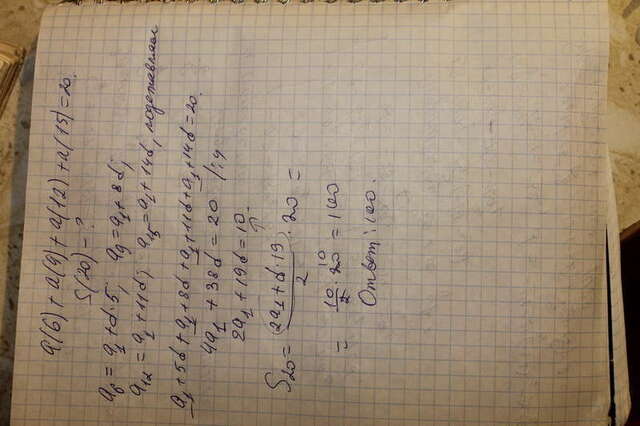 a(6) + a(9) + a(12) + a(15) = 20.
S(20) - ?
a₆ = a₁ + d·5; a₉ = a₁ + 8d;
a₁₂ = a₁ + 11d; a₁₅ = a₁ + 14d, подставляем
a₁ + 5d + a₁ + 8d + a₁ + 11d + a₁ + 14d = 20.
4a₁ + 38d = 20 /:4
2a₁ + 19d = 10.
S₂₀ = (2a₁ + d·19)/2 · 20 =
= 10/2 · 20 10 = 100
Ответ: 100.